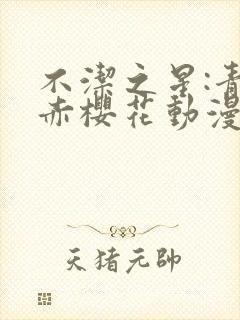 不潔之星:青
赤櫻花動漫
天猪元帥